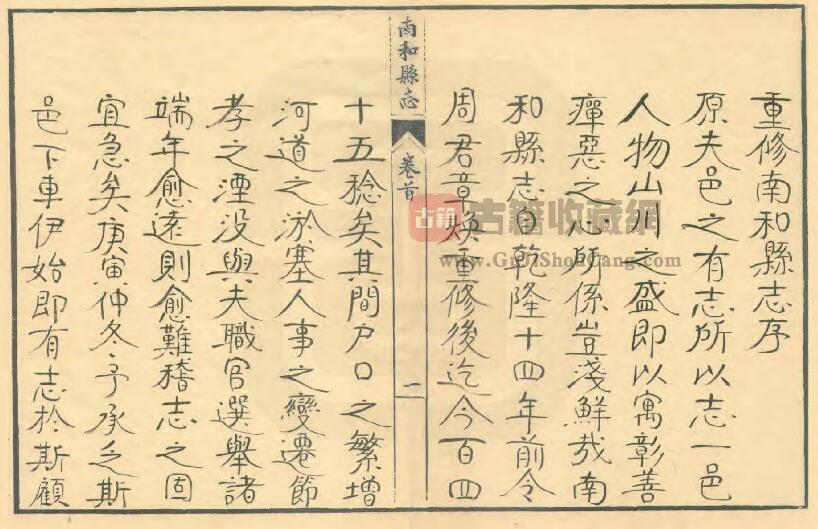 重修南和縣志序
原夫邑之有志所以志一邑
人物山川之盛即以寓彰善
癉惡之心所係豈淺鮮哉南
和縣志自乾隆十四年前令
周君章煥重修後迄今百四
南和縣志
卷首
一
十五稔矣其間戶口之繁增
河道之淤塞人事之變遷節
孝之湮没與夫職官選舉諸
端年愈遠則愈難稽志之固
宜急矣庚寅仲冬予承乏斯
邑下車伊始即有志於斯顧
古籍
古籍收藏網
www.GuJiShouCang.com